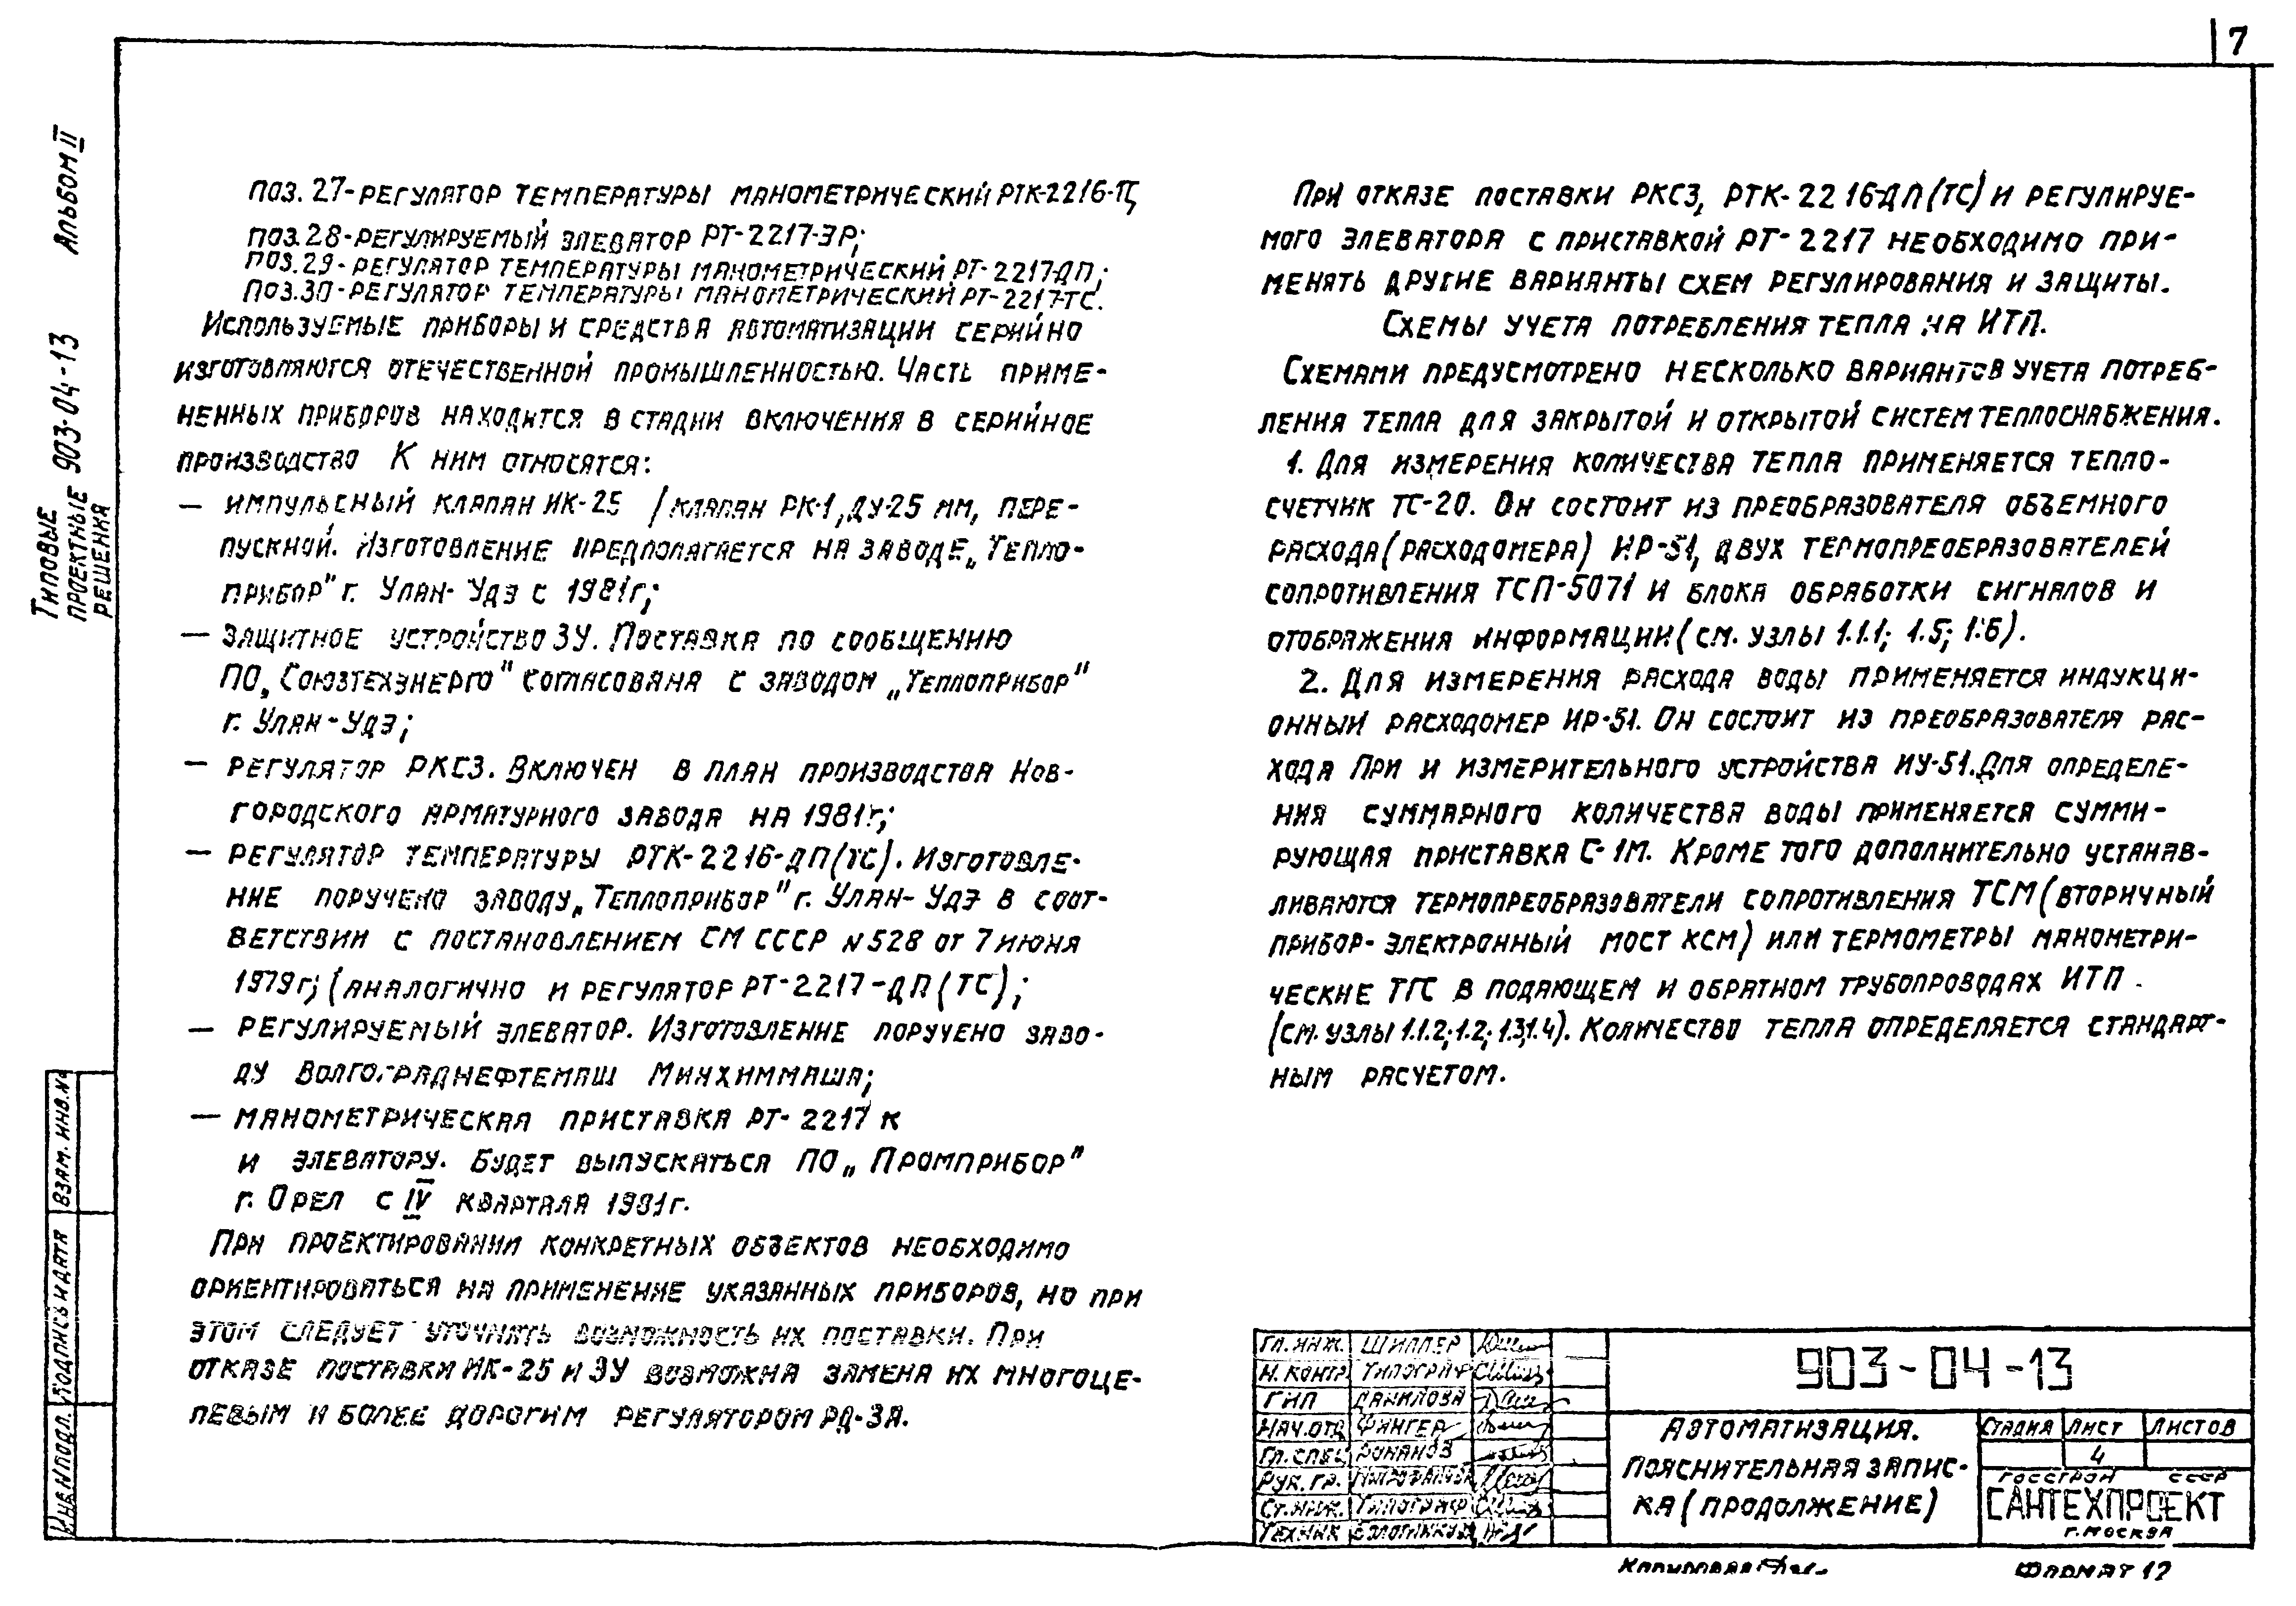 7
Альбом II
Типовые
проектные 903-04-13
решения
поз. 27-регулятор температуры манометрический РТК-2216-ТС
поз.28-регулируемый элеватор РТ-2217-ЭР;
поз.29-регулятор температуры манометрический РТ-2217-ДП;
поз.30-регулятор температуры манометрический РТ-2217-ТС.
Используемые приборы и средства автоматизации серийно
изготовляются отечественной промышленностью. Часть приме-
ненных приборов находится в стадии включения в серийное
производство К ним относятся:
— импульсный клапан ИК-25 /клапан РК-1, ДУ-25 мм, пере-
пускной. Изготовление предполагается на заводе „Тепло-
прибор" г. Улан-Удэ с 1981г;
— защитное устройство ЗУ. Поставка по сообщению
ПО „Союзтехэнерго" согласована с заводом „Теплоприбор"
г. Улан-Удэ;
— регулятор РКСЗ. Включен в план производства Нов-
городского арматурного завода на 1981г;
— регулятор температуры РТК-2216-ДП(ТС). Изготовле-
ние поручено заводу „Теплоприбор" г. Улан-Удэ в соот-
ветствии с постановлением СМ СССР N 528 от 7 июня
1979г; (аналогично и регулятор РТ-2217-ДП(ТС);
— регулируемый элеватор. Изготовление поручено заво-
ду Волгограднефтемаш Минхиммаша;
— манометрическая приставка РТ-2217 к
и элеватору. Будет выпускаться ПО „Промприбор"
г. Орел с IV квартала 1981г.
При проектировании конкретных объектов необходимо
ориентироваться на применение указанных приборов, но при
этом следует уточнять возможность их поставки. При
отказе поставки ИК-25 и ЗУ возможна замена их многоце-
левым и более дорогим регулятором РД-3А.
При отказе поставки РКСЗ, РТК-2216-ДП(ТС) и регулируе-
мого элеватора с приставкой РТ-2217 необходимо при-
менять другие варианты схем регулирования и защиты.
Схемы учета потребления тепла на ИТП.
Схемами предусмотрено несколько вариантов учета потреб-
ления тепла для закрытой и открытой систем теплоснабжения.
1. Для измерения количества тепла применяется тепло-
счетчик ТС-20. Он состоит из преобразователя объемного
расхода (расходомера) ИР-51, двух термопреобразователей
сопротивления ТСП-5071 и блока обработки сигналов и
отображения информации (см. узлы 1.1.1; 1.5; 1.6).
2. Для измерения расхода воды применяется индукци-
онный расходомер ИР-51. Он состоит из преобразователя рас-
хода При и измерительного устройства ИУ-51. Для определе-
ния суммарного количества воды применяется сумми-
рующая приставка С-1М. Кроме того дополнительно устанав-
ливаются термопреобразователи сопротивления ТСМ (вторичный
прибор-электронный мост КСМ) или термометры манометри-
ческие ТГС в подающем и обратном трубопроводах ИТП.
(см. узлы 1.1.2; 1.2; 1.3; 1.4). Количество тепла определяется стандарт-
ным расчетом.
Взам. инв. №
Подпись и дата
Инв. N подл.
Гл. инж. Шиллер
Н. контр. Типограф
ГИП Данилова
Нач. отд Фингер
Гл. спец Романов
Рук. гр.
Ст. инж. Типограф
Техник
903-04-13
Автоматизация.
Пояснительная запис-
ка (продолжение)
Стадия Лист Листов
4
Госстрой СССР
САНТЕХПРОЕКТ
г. Москва
Копировал
Формат 12